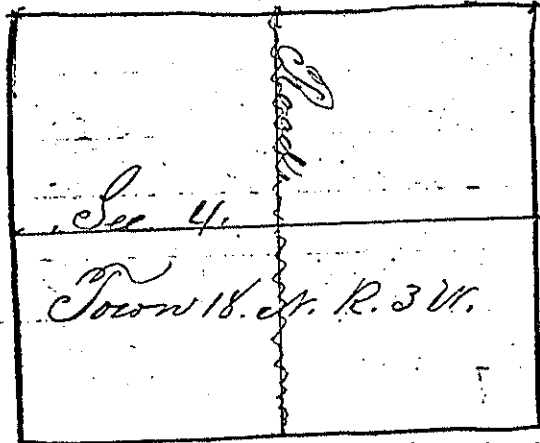 Road
Sec. 4.
Town 18. N. R. 3 W.